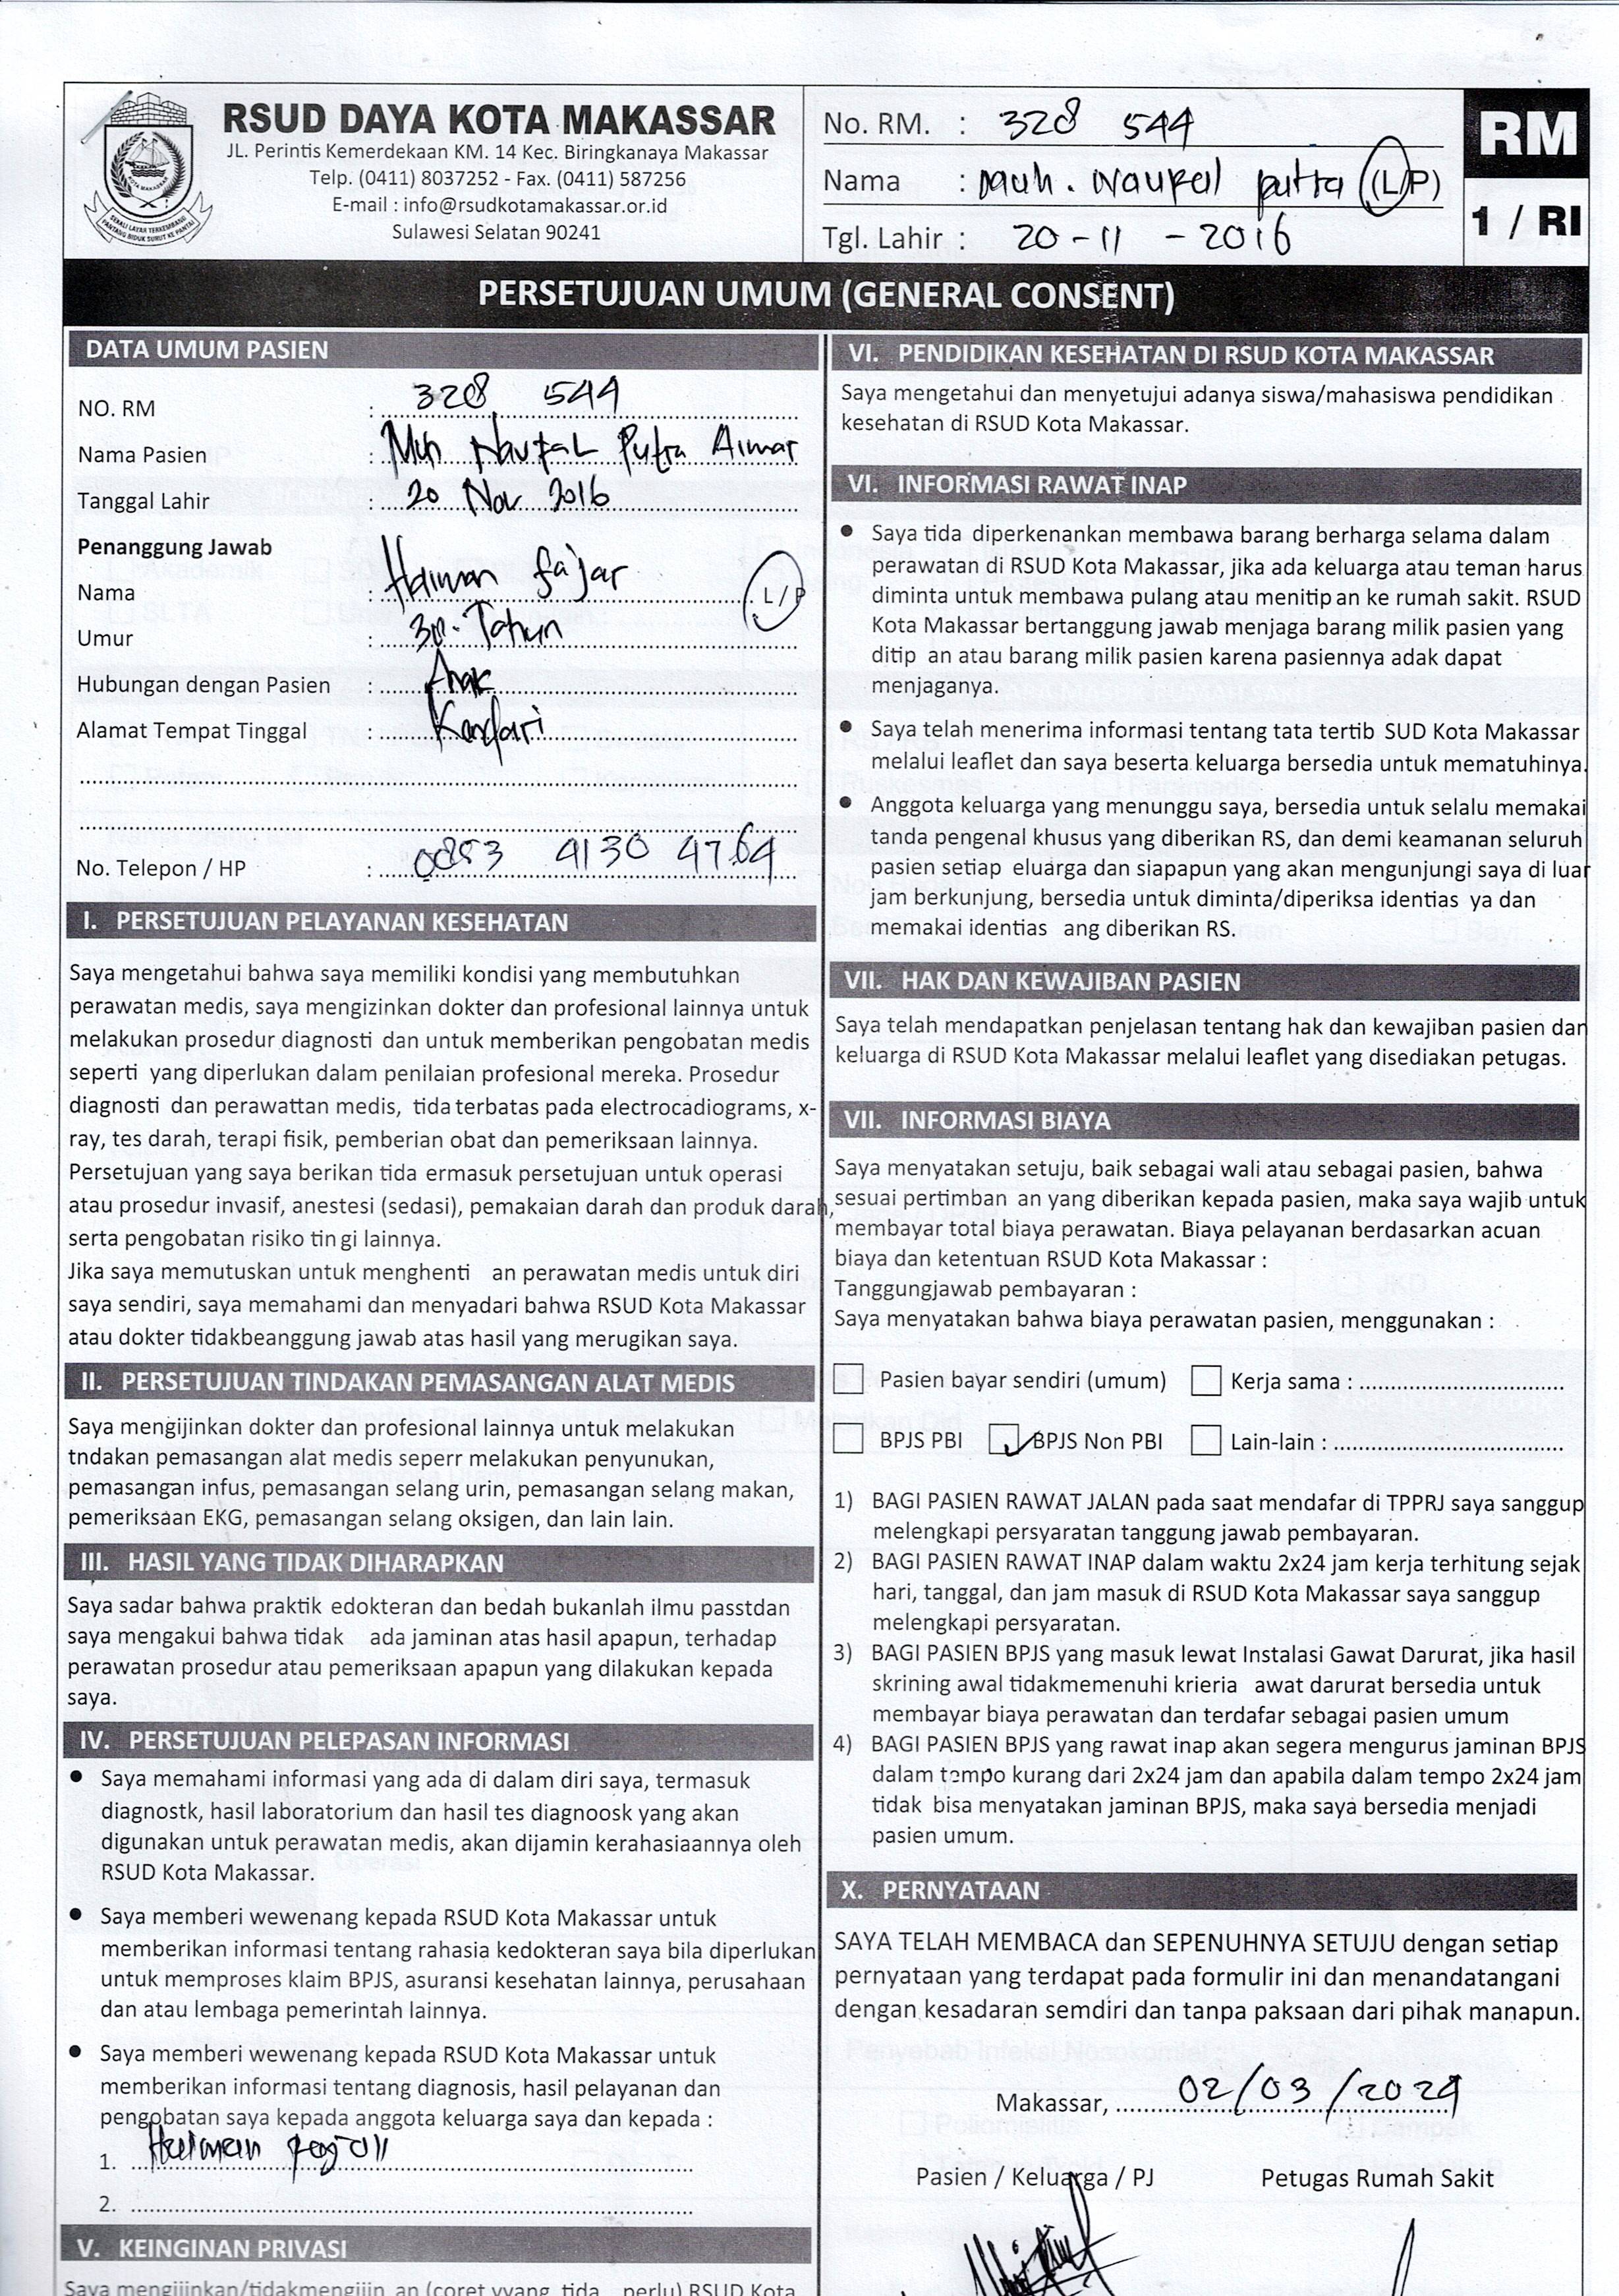 RSUD DAYA KOTA MAKASSAR
JL. Perintis Kemerdekaan KM. 14 Kec. Biringkanaya Makassar
Telp. (0411) 8037252 - Fax. (0411) 587256
E-mail : info@rsudkotamakassar.or.id
Sulawesi Selatan 90241
KOTA MAKASSAR
SEKALI LAYAR TERKEMBANG
PANTANG BIDUK SURUT KE PANTAI
No. RM. : 328 544
Nama : Muh. Naufal putra (L/P)
Tgl. Lahir : 20 - 11 - 2016
RM
1 / RI
PERSETUJUAN UMUM (GENERAL CONSENT)
DATA UMUM PASIEN
NO. RM : 328 544
Nama Pasien : Muh Naufal Putra Aimar
Tanggal Lahir : 20 Nov 2016
Penanggung Jawab
Nama : fajar L/P
Umur : Tahun
Hubungan dengan Pasien : Anak
Alamat Tempat Tinggal : Kendari
No. Telepon / HP : 4130 4764
I. PERSETUJUAN PELAYANAN KESEHATAN
Saya mengetahui bahwa saya memiliki kondisi yang membutuhkan
perawatan medis, saya mengizinkan dokter dan profesional lainnya untuk
melakukan prosedur diagnosti dan untuk memberikan pengobatan medis
seperti yang diperlukan dalam penilaian profesional mereka. Prosedur
diagnosti dan perawattan medis, tida terbatas pada electrocadiograms, x-
ray, tes darah, terapi fisik, pemberian obat dan pemeriksaan lainnya.
Persetujuan yang saya berikan tida ermasuk persetujuan untuk operasi
atau prosedur invasif, anestesi (sedasi), pemakaian darah dan produk darah,
serta pengobatan risiko tin gi lainnya.
Jika saya memutuskan untuk menghenti an perawatan medis untuk diri
saya sendiri, saya memahami dan menyadari bahwa RSUD Kota Makassar
atau dokter tidakbeanggung jawab atas hasil yang merugikan saya.
II. PERSETUJUAN TINDAKAN PEMASANGAN ALAT MEDIS
Saya mengijinkan dokter dan profesional lainnya untuk melakukan
tndakan pemasangan alat medis seperr melakukan penyunukan,
pemasangan infus, pemasangan selang urin, pemasangan selang makan,
pemeriksaan EKG, pemasangan selang oksigen, dan lain lain.
III. HASIL YANG TIDAK DIHARAPKAN
Saya sadar bahwa praktik edokteran dan bedah bukanlah ilmu passtdan
saya mengakui bahwa tidak ada jaminan atas hasil apapun, terhadap
perawatan prosedur atau pemeriksaan apapun yang dilakukan kepada
saya.
IV. PERSETUJUAN PELEPASAN INFORMASI
• Saya memahami informasi yang ada di dalam diri saya, termasuk
diagnostk, hasil laboratorium dan hasil tes diagnoosk yang akan
digunakan untuk perawatan medis, akan dijamin kerahasiaannya oleh
RSUD Kota Makassar.
• Saya memberi wewenang kepada RSUD Kota Makassar untuk
memberikan informasi tentang rahasia kedokteran saya bila diperlukan
untuk memproses klaim BPJS, asuransi kesehatan lainnya, perusahaan
dan atau lembaga pemerintah lainnya.
• Saya memberi wewenang kepada RSUD Kota Makassar untuk
memberikan informasi tentang diagnosis, hasil pelayanan dan
pengobatan saya kepada anggota keluarga saya dan kepada :
1.
2.
V. KEINGINAN PRIVASI
Saya mengijinkan/tidakmengijin an (coret yyang tida perlu) RSUD Kota
VI. PENDIDIKAN KESEHATAN DI RSUD KOTA MAKASSAR
Saya mengetahui dan menyetujui adanya siswa/mahasiswa pendidikan
kesehatan di RSUD Kota Makassar.
VI. INFORMASI RAWAT INAP
• Saya tida diperkenankan membawa barang berharga selama dalam
perawatan di RSUD Kota Makassar, jika ada keluarga atau teman harus
diminta untuk membawa pulang atau menitip an ke rumah sakit. RSUD
Kota Makassar bertanggung jawab menjaga barang milik pasien yang
ditip an atau barang milik pasien karena pasiennya adak dapat
menjaganya.
• Saya telah menerima informasi tentang tata tertib SUD Kota Makassar
melalui leaflet dan saya beserta keluarga bersedia untuk mematuhinya.
• Anggota keluarga yang menunggu saya, bersedia untuk selalu memakai
tanda pengenal khusus yang diberikan RS, dan demi keamanan seluruh
pasien setiap eluarga dan siapapun yang akan mengunjungi saya di luar
jam berkunjung, bersedia untuk diminta/diperiksa identias ya dan
memakai identias ang diberikan RS.
VII. HAK DAN KEWAJIBAN PASIEN
Saya telah mendapatkan penjelasan tentang hak dan kewajiban pasien dan
keluarga di RSUD Kota Makassar melalui leaflet yang disediakan petugas.
VII. INFORMASI BIAYA
Saya menyatakan setuju, baik sebagai wali atau sebagai pasien, bahwa
sesuai pertimban an yang diberikan kepada pasien, maka saya wajib untuk
membayar total biaya perawatan. Biaya pelayanan berdasarkan acuan
biaya dan ketentuan RSUD Kota Makassar :
Tanggungjawab pembayaran :
Saya menyatakan bahwa biaya perawatan pasien, menggunakan :
Pasien bayar sendiri (umum) Kerja sama :
BPJS PBI BPJS Non PBI Lain-lain :
1) BAGI PASIEN RAWAT JALAN pada saat mendafar di TPPRJ saya sanggup
melengkapi persyaratan tanggung jawab pembayaran.
2) BAGI PASIEN RAWAT INAP dalam waktu 2x24 jam kerja terhitung sejak
hari, tanggal, dan jam masuk di RSUD Kota Makassar saya sanggup
melengkapi persyaratan.
3) BAGI PASIEN BPJS yang masuk lewat Instalasi Gawat Darurat, jika hasil
skrining awal tidakmemenuhi krieria awat darurat bersedia untuk
membayar biaya perawatan dan terdafar sebagai pasien umum
4) BAGI PASIEN BPJS yang rawat inap akan segera mengurus jaminan BPJS
dalam tempo kurang dari 2x24 jam dan apabila dalam tempo 2x24 jam
tidak bisa menyatakan jaminan BPJS, maka saya bersedia menjadi
pasien umum.
X. PERNYATAAN
SAYA TELAH MEMBACA dan SEPENUHNYA SETUJU dengan setiap
pernyataan yang terdapat pada formulir ini dan menandatangani
dengan kesadaran semdiri dan tanpa paksaan dari pihak manapun.
Makassar, 02/03/2024
Pasien / Keluarga / PJ Petugas Rumah Sakit